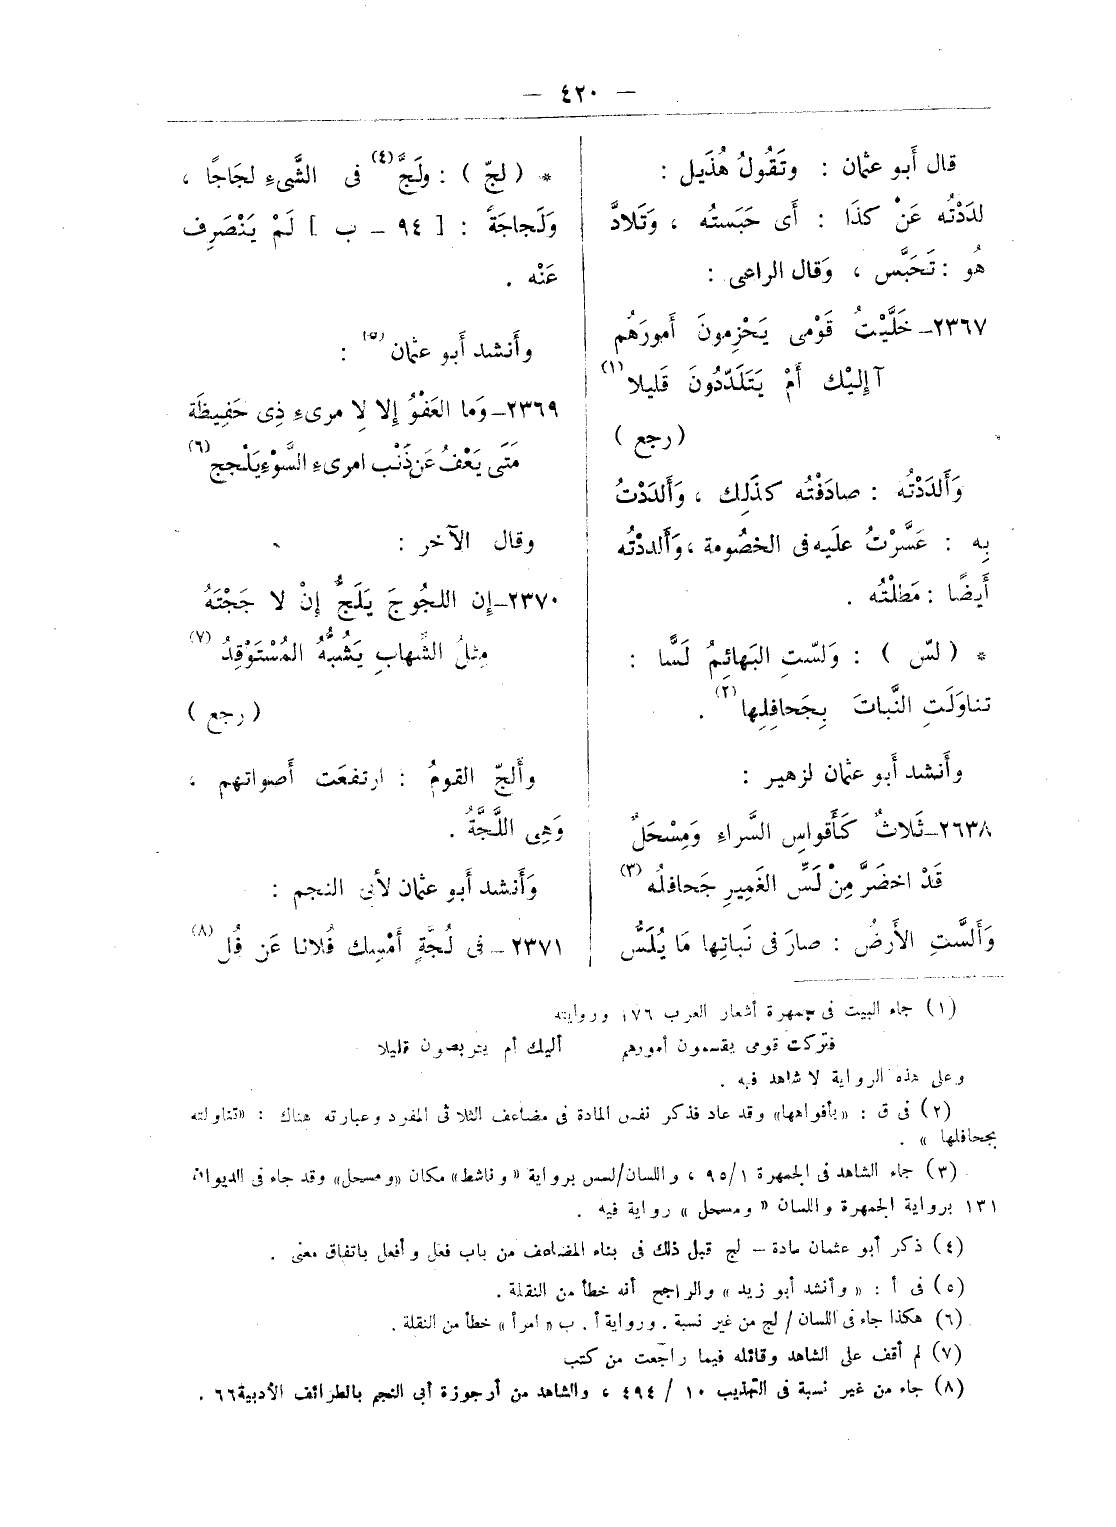 — ٤٢٠ —
قال أَبو عثمان : وتَقُولُ هُذَيل :
لدَدْتُه عَنْ كذَا : أَى حَبَسته ، وَتَلادَّ
هُو : تَحَبَّس ، وَقال الراعى :
٢٣٦٧- خَلَّيْتُ قَوْمى يَحْزِمونَ أَمورَهُم
آإِليْك أَمْ يَتَلَدّدُونَ قَليلا (١)
( رجع )
وَأَلدَدْتُه : صادَفْتُه كذَلِك ، وَأَلدَدْتُ
بِه : عَسَّرْتُ علَيه فى الخصُومة ، وَأَلددْتُه
أَيضًا : مَطلْتُه .
* ( لسّ ) : وَلسّتِ البَهائِمُ لَسًّا :
تناوَلَتِ النَّباتَ بِجَحافِلِها (٢) .
وأَنشد أَبو عثمان لزهير :
٢٦٣٨- ثَلاثٌ كَأَقواسِ السَّراءِ وَمِسْحَلٌ
قَدْ اخضَرَّ مِنْ لَسِّ الغَميرِ جَحافلُه (٣)
وَأَلسَّتِ الأَرضُ : صارَ فى نَباتِها مَا يُلَسُّ
* ( لجّ ) : ولَجَّ (٤) فى الشَّىءِ لجَاجًا ،
وَلَجاجَةً : [ ٩٤ - ب ] لَمْ يَنْصَرِف
عَنْه .
وأَنشد أَبو عثمان (٥) :
٢٣٦٩- وَما العَفْوُ إِلا لِا مرىءِ ذِى حَفِيظَة
مَتَى يَعْفُ عَن ذَنْب امرىءِ السَّوْءِ يَلْجج (٦)
وقال الآخر :
٢٣٧٠- إِن اللجُوجَ يَلَجُّ إِنْ لا جَجْتَهُ
مِثلُ الشِّهابِ يَشُبُّهُ المُسْتَوْقِدُ (٧)
( رجع )
وأَلجّ القومُ : ارتفعَت أَصواتهم ،
وَهِى اللَّجَّةُ .
وَأَنشد أَبو عثمان لأَبى النجم :
٢٣٧١ - فى لُجَّةٍ أَمْسِك فُلانا عَن فُل (٨)
(١) جاء البيت فى جمهرة أشعار العرب ١٧٦ وروايته
فتركت قومى يقسمون أمورهم أليك أم يتربصون قليلا
وعلى هذه الرواية لا شاهد فيه .
(٢) فى ق : «بأفواهها» وقد عاد فذكر نفس المادة فى مضاعف الثلاثى المفرد وعبارته هناك : «تناولته
بجحافلها » .
(٣) جاء الشاهد فى الجمهرة ١/ ٩٥ ، واللسان/لسس برواية « وناشط» مكان «ومسحل» وقد جاء فى الديوان
١٣١ برواية الجمهرة واللسان « ومسحل » رواية فيه .
(٤) ذكر أبو عثمان مادة - لج قبل ذلك فى بناء المضاعف من باب فعل وأفعل باتفاق معنى .
(٥) فى أ : « وأنشد أبو زيد » والراجح أنه خطأ من النقلة .
(٦) هكذا جاء فى اللسان / لج من غير نسبة . ورواية أ . ب « امرأ » خطأ من النقلة .
(٧) لم أقف على الشاهد وقائله فيما راجعت من كتب
(٨) جاء من غير نسبة فى التهذيب ١٠ / ٤٩٤ ، والشاهد من أرجوزة أبى النجم بالطرائف الأدبية ٦٦ .